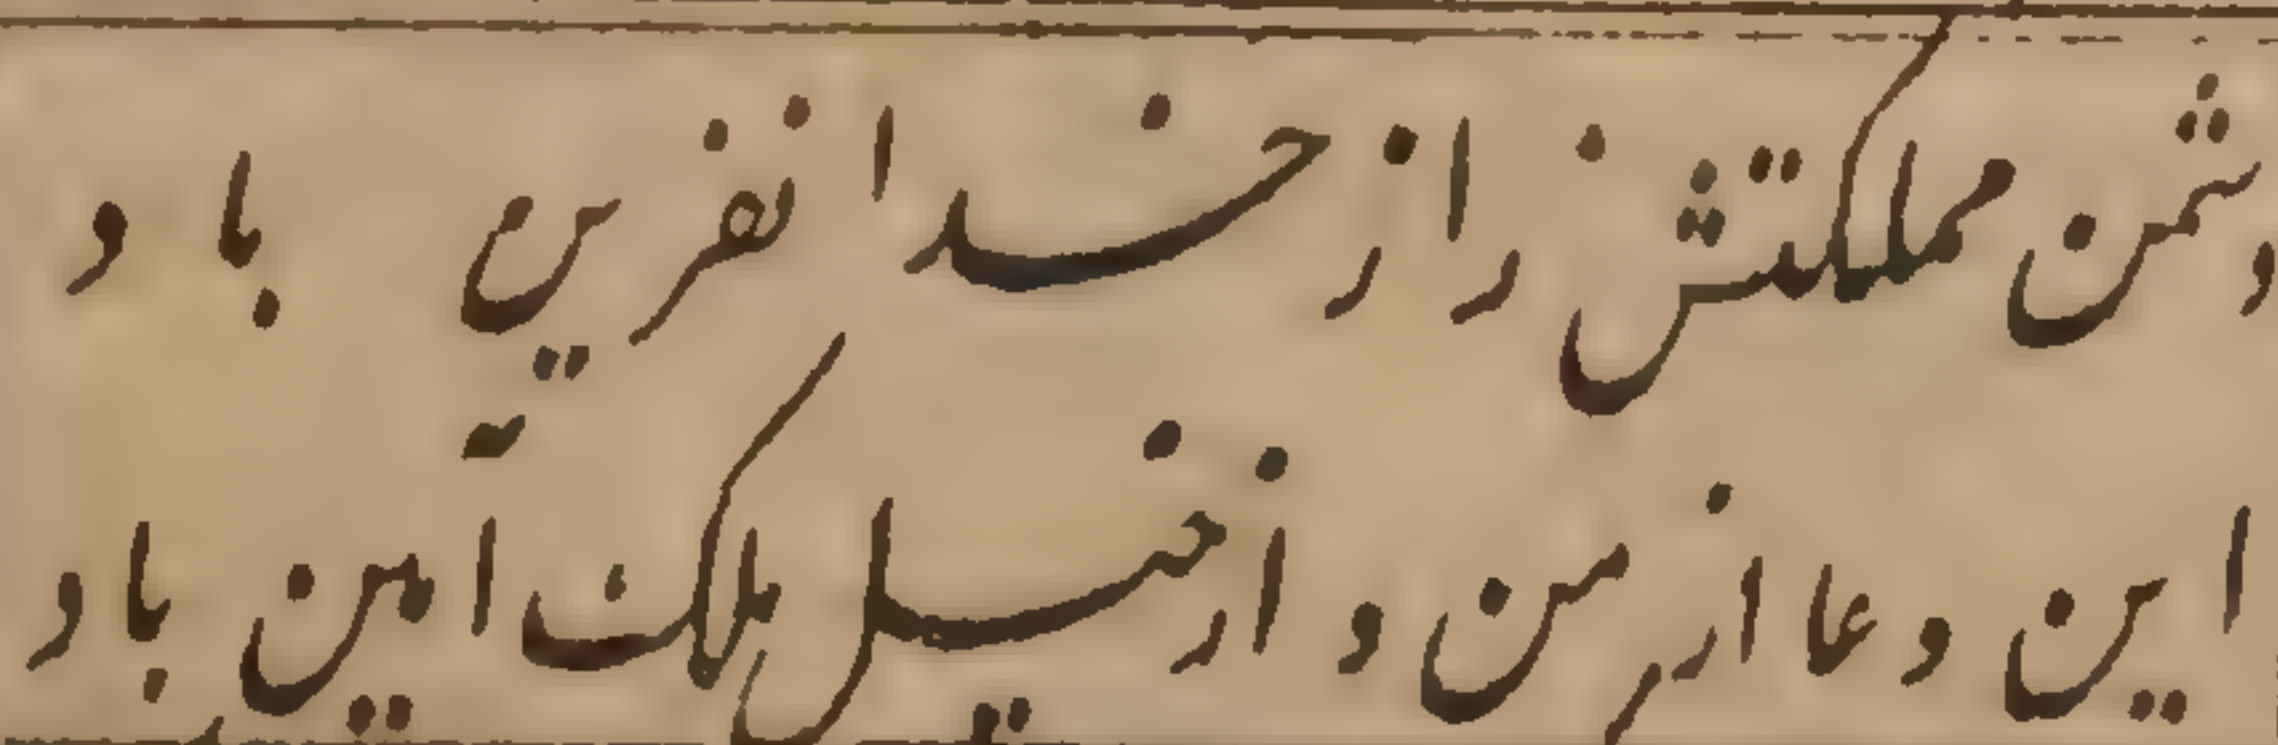 دشمن مملکتش را از خدا نفرین باد
این دعا از من و از خیل ملک آمین باد